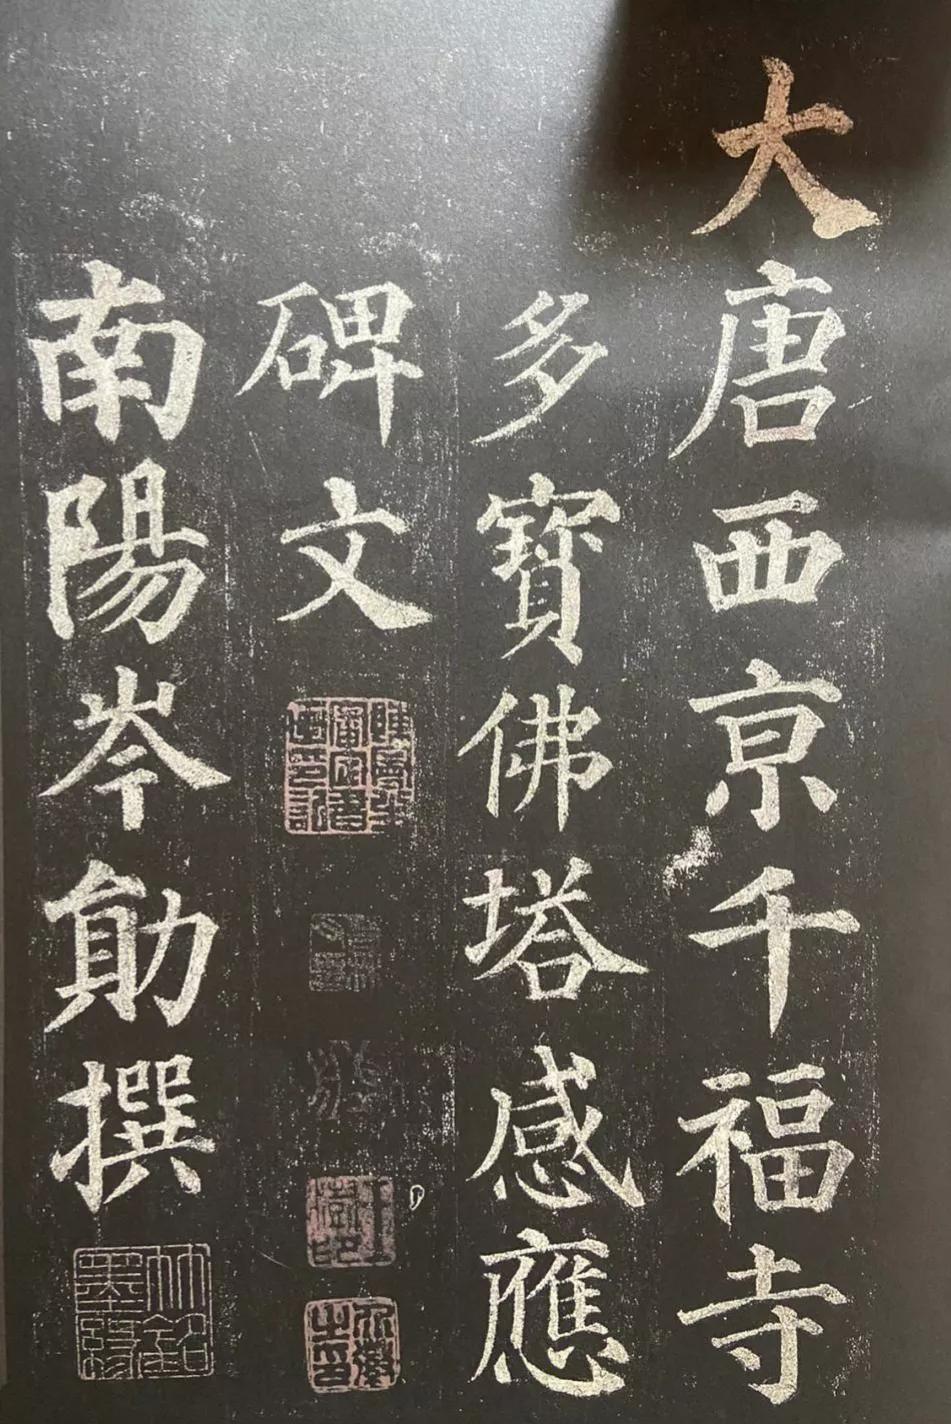 大唐西亰千福寺
多寶佛塔感應
碑文
南陽岑勛撰